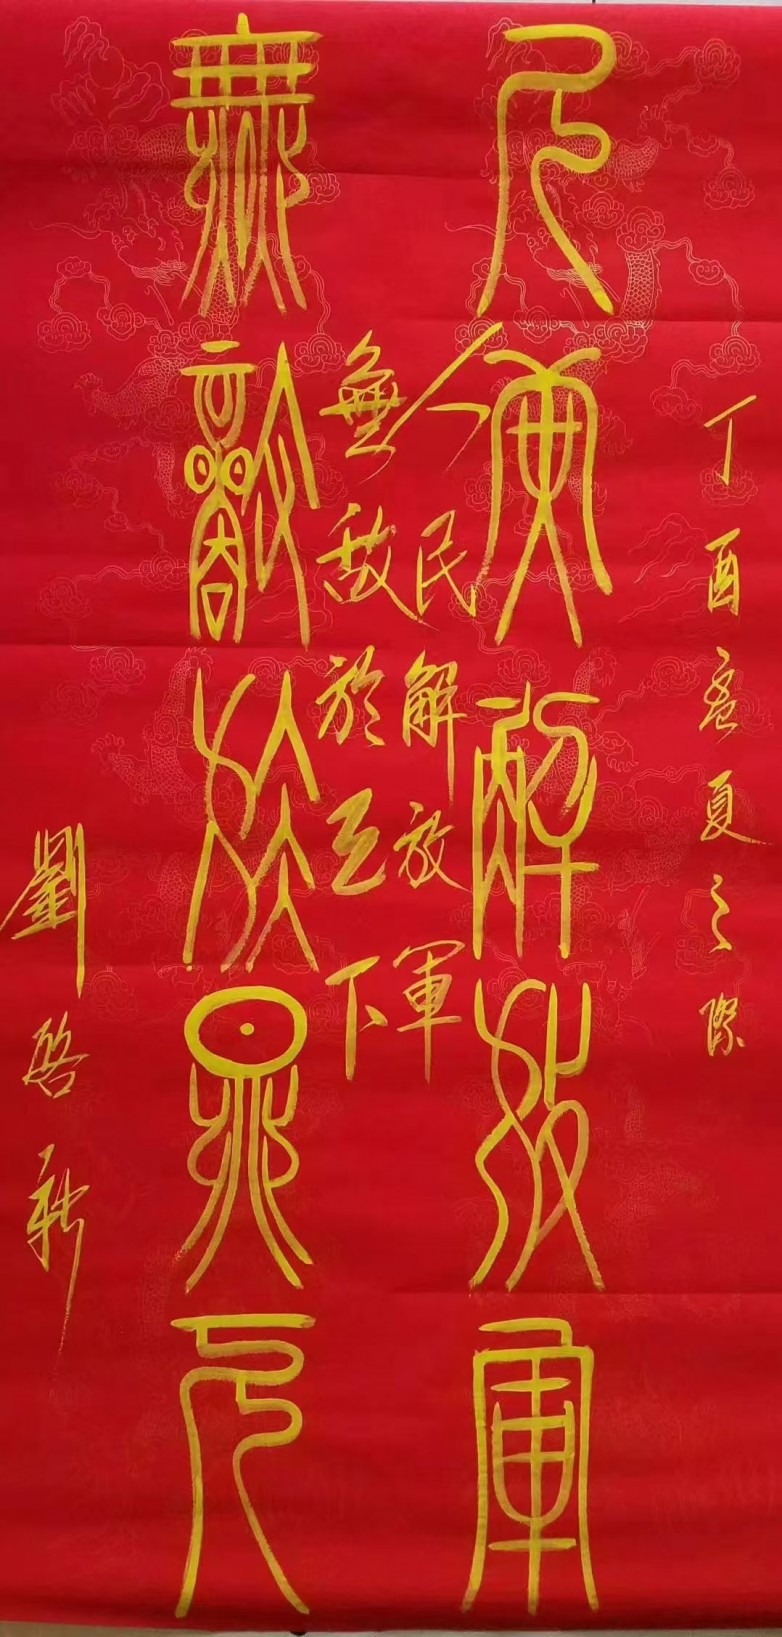 丁酉孟夏之際
人民解放軍
人民解放軍
無敵於天下
無敵於天下
劉啓新